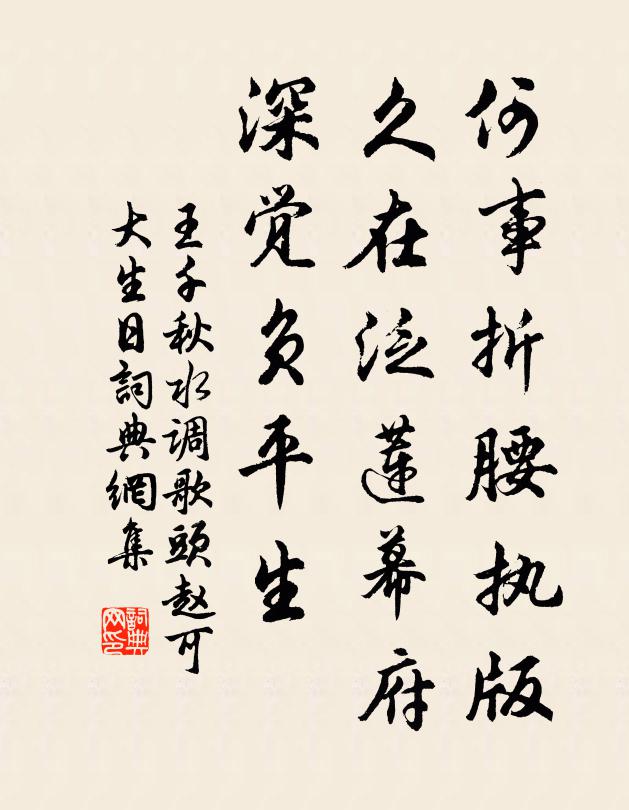 何事折腰执版
久在泛莲幕府
深觉负平生
王千秋水调歌頭赵可
大生日詞典網集
詞典网印